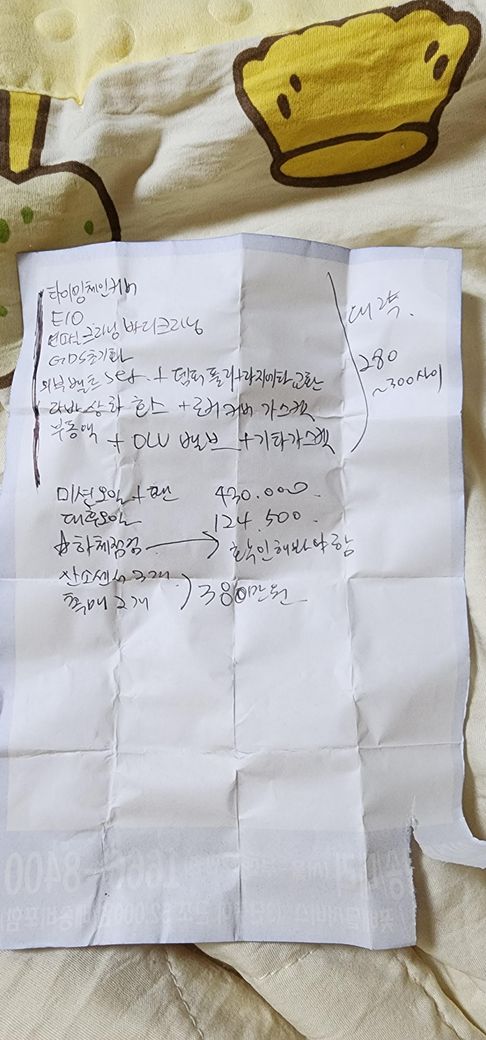 타이밍체인커버
E10
인매니크리닝 바디크리닝
GDS초기화
외부벨트 set + 댐퍼풀리+라지에타교환
라바상하 호스 + 로커커버 가스켓
부동액 + OCV 밸브 + 기타가스켓
대략.
280
~300사이
미션오일+팬 430.000.
데후오일 124.500.
하체점검 → 확인해봐야함
산소센서 3개
촉매 2개 ) 380만원
8400